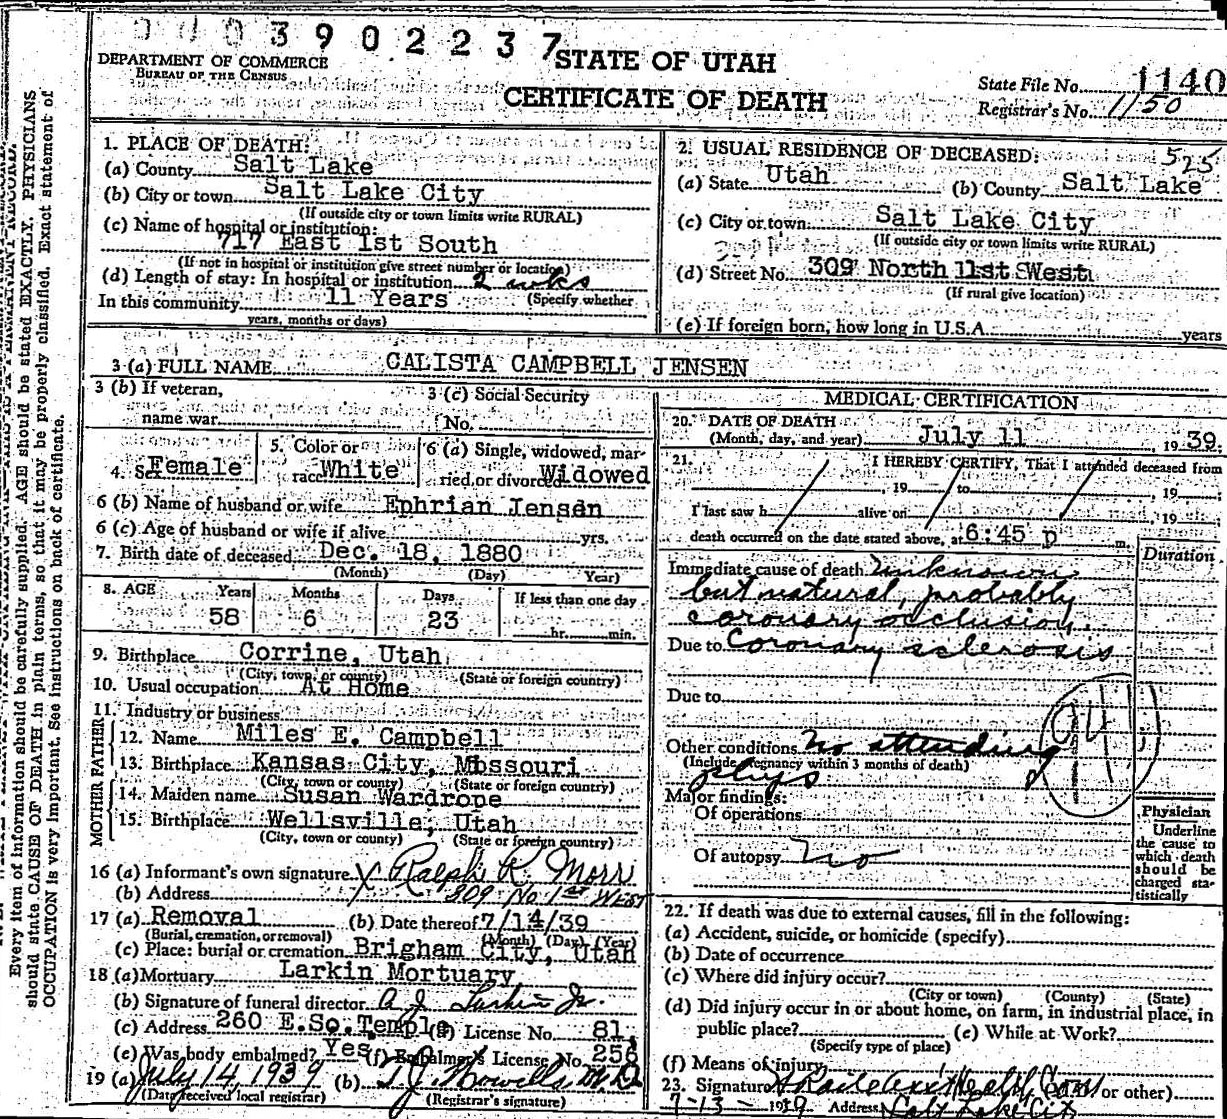 0003902237
DEPARTMENT OF COMMERCE
BUREAU OF THE CENSUS
STATE OF UTAH
CERTIFICATE OF DEATH
State File No. 1140
Registrar's No. 1150
Every item of information should be carefully supplied. AGE should be stated EXACTLY. PHYSICIANS
should state CAUSE OF DEATH in plain terms, so that it may be properly classified. Exact statement of
OCCUPATION is very important. See instructions on back of certificate.
1. PLACE OF DEATH:
(a) County Salt Lake
(b) City or town Salt Lake City
(If outside city or town limits write RURAL)
(c) Name of hospital or institution:
717 East 1st South
(If not in hospital or institution give street number or location)
(d) Length of stay: In hospital or institution 2 wks
In this community 11 Years (Specify whether
years, months or days)
2. USUAL RESIDENCE OF DECEASED: 525
(a) State Utah (b) County Salt Lake
(c) City or town Salt Lake City
(If outside city or town limits write RURAL)
(d) Street No. 309 North 1st West
(If rural give location)
(e) If foreign born, how long in U.S.A. years
3 (a) FULL NAME CALISTA CAMPBELL JENSEN
3 (b) If veteran,
name war
3 (c) Social Security
No.
4. Sex Female
5. Color or
race White
6 (a) Single, widowed, mar-
ried, or divorced Widowed
6 (b) Name of husband or wife Ephrian Jensen
6 (c) Age of husband or wife if alive yrs.
7. Birth date of deceased Dec. 18, 1880
(Month) (Day) Year)
8. AGE Years Months Days If less than one day
58 6 23 hr. min.
9. Birthplace Corrine, Utah
(City, town, or county) (State or foreign country)
10. Usual occupation At Home
11. Industry or business
FATHER
12. Name Miles E. Campbell
13. Birthplace Kansas City, Missouri
(City, town or county) (State or foreign country)
MOTHER
14. Maiden name Susan Wardrope
15. Birthplace Wellsville, Utah
(City, town or county) (State or foreign country)
16 (a) Informant's own signature X Ralph K. Morr
(b) Address 309 No 1st WEST
17 (a) Removal (b) Date thereof 7/14/39
(Burial, cremation, or removal) (Month) (Day) (Year)
(c) Place: burial or cremation Brigham City, Utah
18 (a) Mortuary Larkin Mortuary
(b) Signature of funeral director A J Larkin Jr.
(c) Address 260 E.So.Temple (d) License No. 81
(e) Was body embalmed? Yes (f) Embalmer's License No. 256
19 (a) July 14, 1939 (b) T J Howells M.D
(Date received local registrar) (Registrar's signature)
MEDICAL CERTIFICATION
20. DATE OF DEATH
(Month, day, and year) July 11 19 39
21. I HEREBY CERTIFY, That I attended deceased from
, 19 to , 19
I last saw h alive on , 19
death occurred on the date stated above, at 6:45 p m.
Duration
Immediate cause of death unknown
but natural, probably
coronary occlusion.
Due to Coronary sclerosis
Due to
94
Other conditions No attending
(Include pregnancy within 3 months of death)
phys
Major findings:
Of operations
Of autopsy No
Physician
Underline
the cause to
which death
should be
charged sta-
tistically
22. If death was due to external causes, fill in the following:
(a) Accident, suicide, or homicide (specify)
(b) Date of occurrence
(c) Where did injury occur?
(City or town) (County) (State)
(d) Did injury occur in or about home, on farm, in industrial place, in
public place? (e) While at Work?
(Specify type of place)
(f) Means of injury
23. Signature Health Com or other)
7-13-1939 Address Salt Lake City